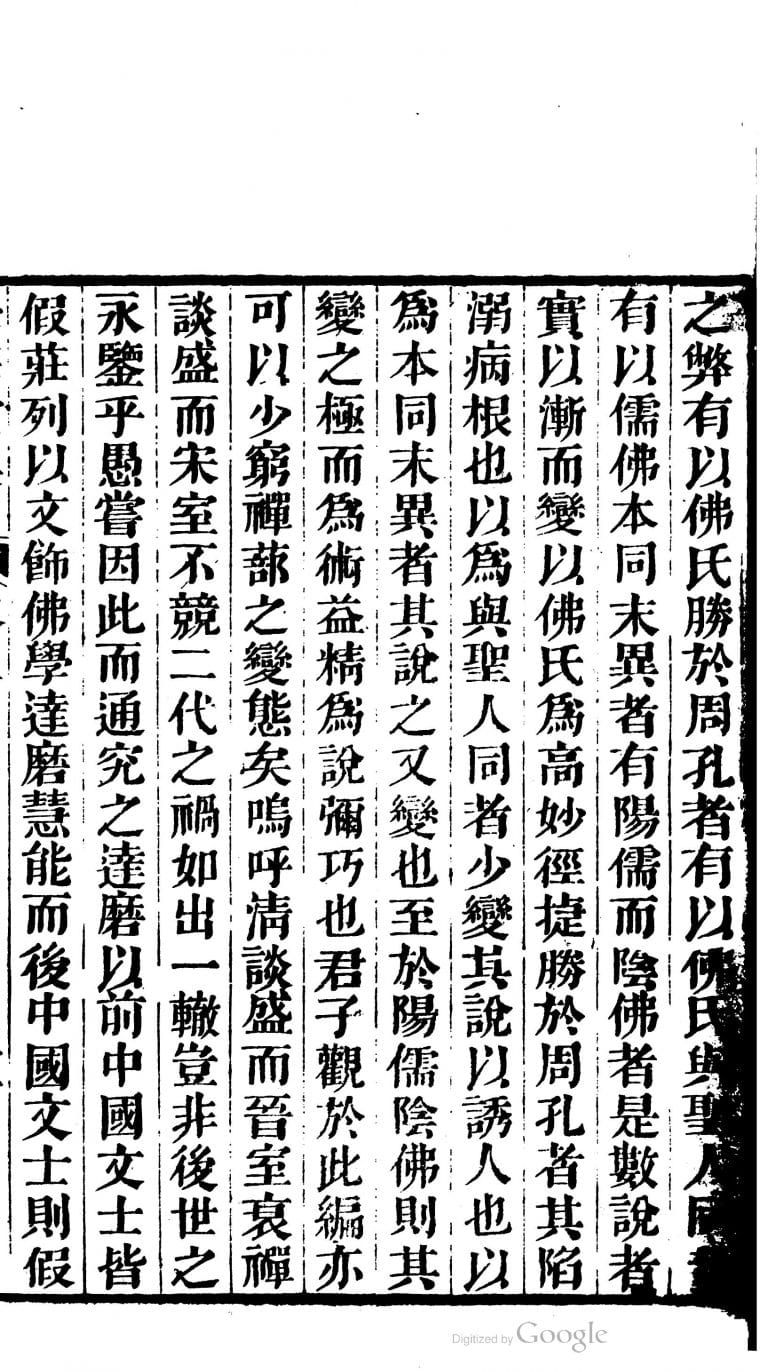 之弊有以佛氏勝於周孔者有以佛氏與聖人同者
有以儒佛本同末異者有陽儒而陰佛者是數說者
實以漸而變以佛氏爲高妙徑捷勝於周孔者其陷
溺病根也以爲與聖人同者少變其說以誘人也以
爲本同末異者其說之又變也至於陽儒陰佛則其
變之極而爲術益精爲說彌巧也君子觀於此編亦
可以少窮禪蔀之變態矣嗚呼淸談盛而晉室衰禪
談盛而宋室不競二代之禍如出一轍豈非後世之
永鑒乎愚嘗因此而通究之達磨以前中國文士皆
假莊列以文飾佛學達磨慧能而後中國文士則假
Digitized by Google